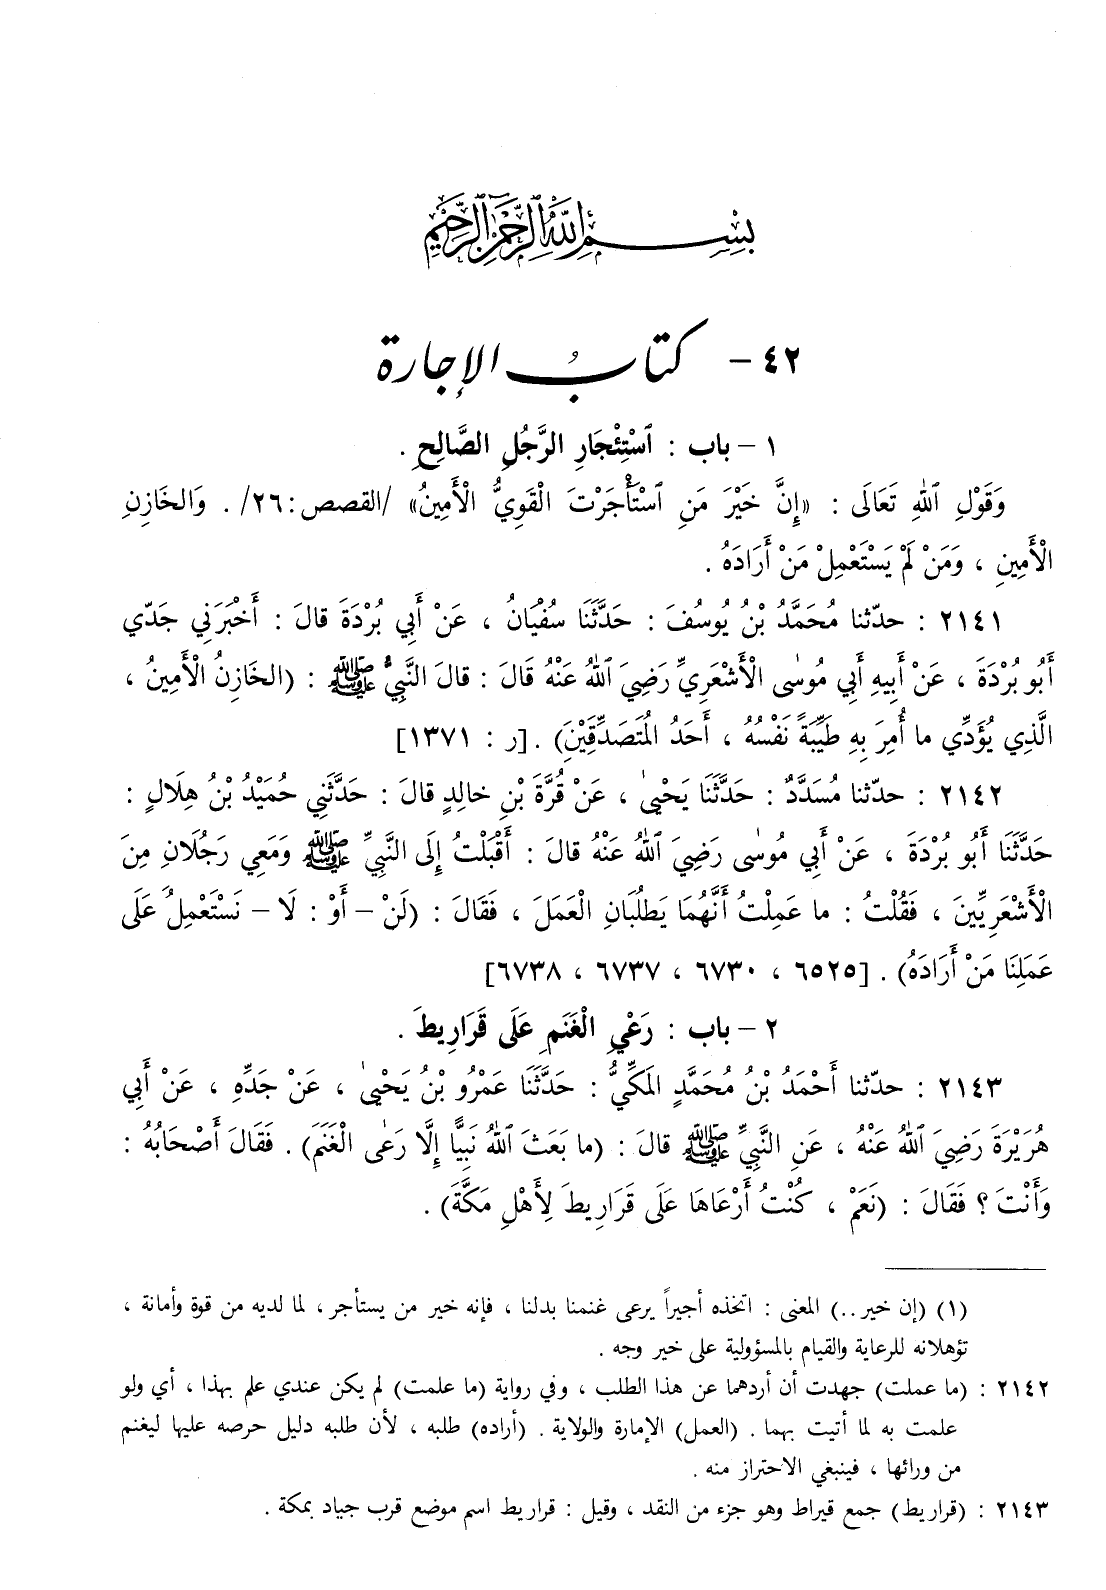 بِسْمِ ٱللَّهِ ٱلرَّحْمَٰنِ ٱلرَّحِيمِ
٤٢ - كتابُ الإجارة
١ - باب : ٱسْتِئْجَارِ الرَّجُلِ الصَّالِحِ .
وَقَوْلِ ٱللهِ تَعَالَى : «إِنَّ خَيْرَ مَنِ ٱسْتَأْجَرْتَ الْقَوِيُّ الْأَمِينُ» /القصص : ٢٦/ . وَالخَازِنِ
الْأَمِينِ ، وَمَنْ لَمْ يَسْتَعْمِلْ مَنْ أَرَادَهُ .
٢١٤١ : حدّثنا مُحَمَّدُ بْنُ يُوسُفَ : حَدَّثَنَا سُفْيَانُ ، عَنْ أَبِي بُرْدَةَ قالَ : أَخْبَرَنِي جَدِّي
أَبُو بُرْدَةَ ، عَنْ أَبِيهِ أَبِي مُوسٰى الْأَشْعَرِيِّ رَضِيَ ٱللهُ عَنْهُ قَالَ : قالَ النَّبِيُّ ﷺ : (الخَازِنُ الْأَمِينُ ،
الَّذِي يُؤَدِّي ما أُمِرَ بِهِ طَيِّبَةً نَفْسُهُ ، أَحَدُ المُتَصَدِّقِينَ) . [ر : ١٣٧١]
٢١٤٢ : حدّثنا مُسَدَّدٌ : حَدَّثَنَا يَحْيىٰ ، عَنْ قُرَّةَ بْنِ خالِدٍ قالَ : حَدَّثَنِي حُمَيْدُ بْنُ هِلَالٍ :
حَدَّثَنَا أَبُو بُرْدَةَ ، عَنْ أَبِي مُوسٰى رَضِيَ ٱللهُ عَنْهُ قالَ : أَقْبَلْتُ إِلَى النَّبِيِّ ﷺ وَمَعِي رَجُلَانِ مِنَ
الْأَشْعَرِيِّينَ ، فَقُلْتُ : ما عَمِلْتُ أَنَّهُمَا يَطلُبَانِ الْعَمَلَ ، فَقَالَ : (لَنْ - أَوْ : لَا - نَسْتَعْمِلُ عَلَى
عَمَلِنَا مَنْ أَرَادَهُ) . [٦٥٢٥ ، ٦٧٣٠ ، ٦٧٣٧ ، ٦٧٣٨]
٢ - باب : رَعْيِ الْغَنَمِ عَلَى قَرَارِيطَ .
٢١٤٣ : حدّثنا أَحْمَدُ بْنُ مُحَمَّدٍ المَكِّيُّ : حَدَّثَنَا عَمْرُو بْنُ يَحْيىٰ ، عَنْ جَدِّهِ ، عَنْ أَبِي
هُرَيْرَةَ رَضِيَ ٱللهُ عَنْهُ ، عَنِ النَّبِيِّ ﷺ قالَ : (ما بَعَثَ ٱللهُ نَبِيًّا إِلَّا رَعٰى الْغَنَمَ) . فَقَالَ أَصْحَابُهُ :
وَأَنْتَ ؟ فَقَالَ : (نَعَمْ ، كُنْتُ أَرْعَاهَا عَلَى قَرَارِيطَ لِأَهْلِ مَكَّةَ) .
(١) (إن خير ..) المعنى : اتخذه أجيراً يرعى غنمنا بدلنا ، فإنه خير من يستأجر ، لما لديه من قوة وأمانة ،
تؤهلانه للرعاية والقيام بالمسؤولية على خير وجه .
٢١٤٢ : (ما عملت) جهدت أن أردهما عن هذا الطلب ، وفي رواية (ما علمت) لم يكن عندي علم بهذا ، أي ولو
علمت به لما أتيت بهما . (العمل) الإمارة والولاية . (أراده) طلبه ، لأن طلبه دليل حرصه عليها ليغنم
من ورائها ، فينبغي الاحتراز منه .
٢١٤٣ : (قراريط) جمع قيراط وهو جزء من النقد ، وقيل : قراريط اسم موضع قرب جياد بمكة .